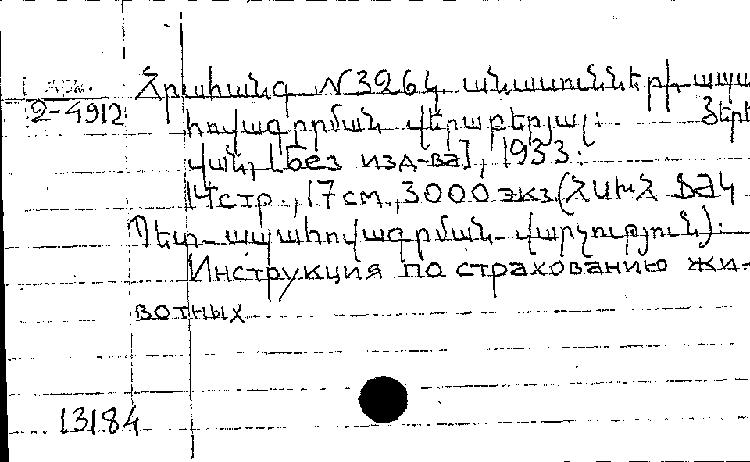 арм.
2-4912
Հրահանգ N 3264 անասունների ապա
հովագրման վերաբերյալ: Յերե
վան, [без изд-ва], 1933.
14 стр., 17 см., 3000 экз. (ՀՍԽՀ ՖԺԿ
Պետ-ապահովագրման վարչություն):
Инструкция по страхованию жи-
вотных
13184